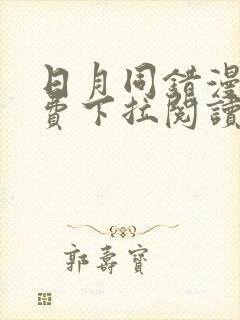 日月同错漫
费下拉阅读
郭寿宝